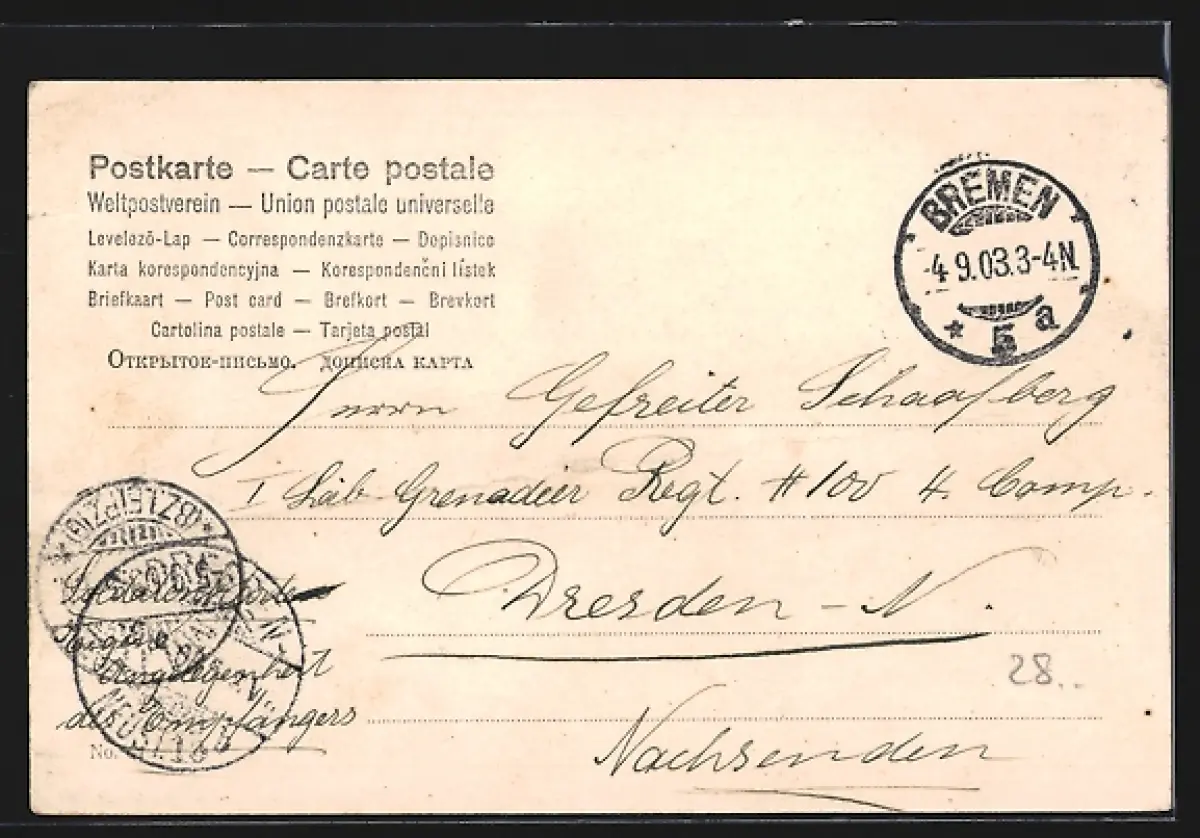 Postkarte — Carte postale
Weltpostverein — Union postale universelle
Levelező-Lap — Correspondenzkarte — Dopisnice
Karta korespondencyjna — Korespondenční lístek
Briefkaart — Post card — Brefkort — Brevkort
Cartolina postale — Tarjeta postal
Открытое-письмо. дописна карта
BREMEN
4 9.03.3-4N.
* 5 a
Herrn Gefreiter Schaafberg
I Leib Grenadier Regt. # 100 4. Comp.
Dresden - N.
Nachsenden
Soldatenkarte
Eigene
Angelegenheit
des Empfängers
No.
LEIPZIG
28..